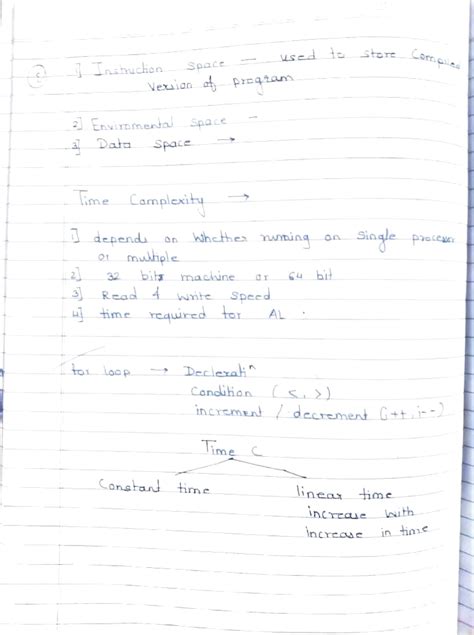 1] Instruction space — used to store Compiled
Version of program
2] Enviromental space -
3] Data space →
Time Complexity →
1] depends on whether running on single processor
or multiple
2] 32 bits machine or 64 bit
3] Read & write speed
4] time required for AL .
for loop → Declerati^n
Condition ( <, > )
increment / decrement (i++, i--)
Time C
Constant time
linear time
increase with
increase in time